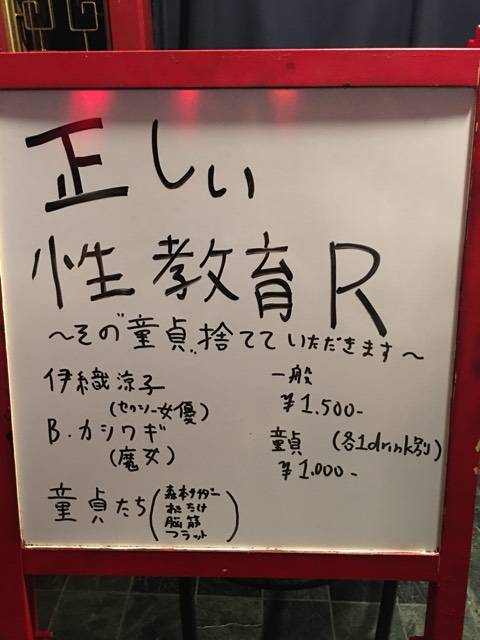 正しい
性教育R
～その“童貞”捨てていただきます～
伊織涼子
(セクシー女優)
B.カシワギ
(魔女)
童貞たち
森本サイダー
おたけ
脳筋
フラット
一般
¥1.500-
童貞 (各1drink別)
¥1.000-